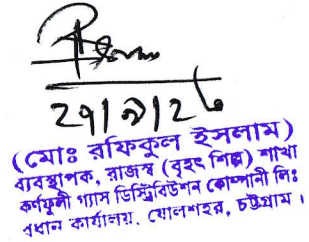 ২৭/৯/২৬
(মোঃ রফিকুল ইসলাম)
ব্যবস্থাপক, রাজস্ব (বৃহৎ শিল্প) শাখা
কর্ণফুলী গ্যাস ডিস্ট্রিবিউশন কোম্পানী লিঃ
প্রধান কার্যালয়, ষোলশহর, চট্টগ্রাম।